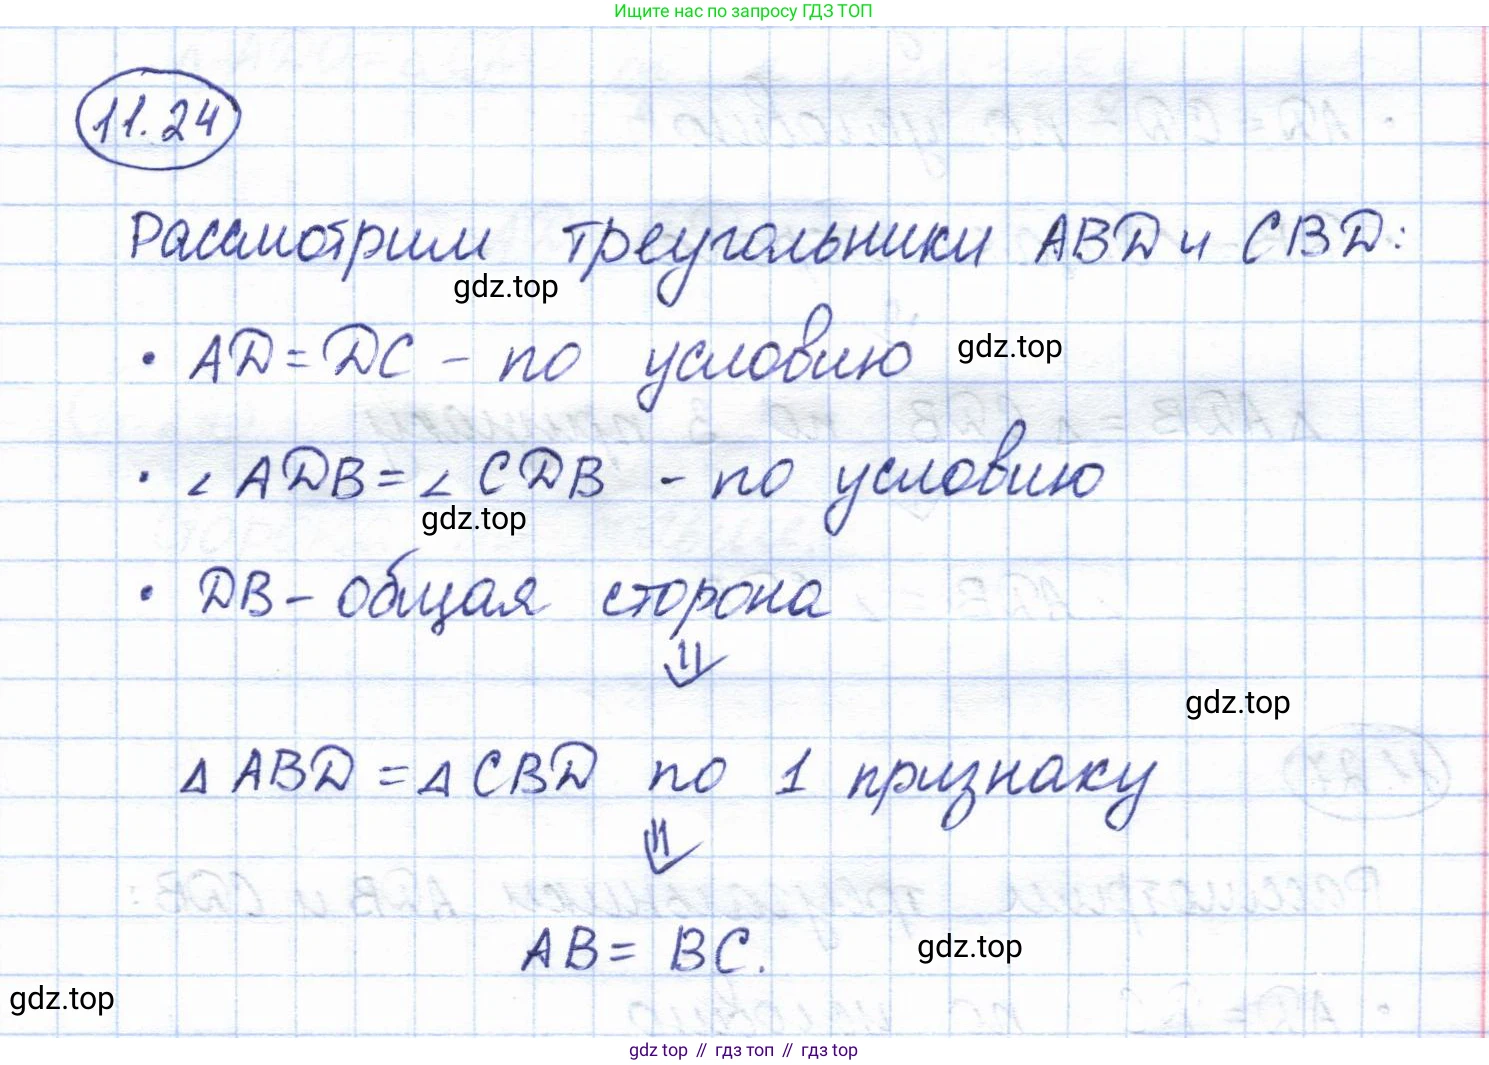 Ищите нас по запросу ГДЗ ТОП
11.24
Рассмотрим треугольники ABD и CBD:
gdz.top
• AD = DC - по условию
gdz.top
• ∠ ADB = ∠ CDB - по условию
gdz.top
• DB - общая сторона
⇓
gdz.top
△ ABD = △ CBD по 1 признаку
⇓
AB = BC.
gdz.top
gdz.top
gdz top // гдз топ // gdz top